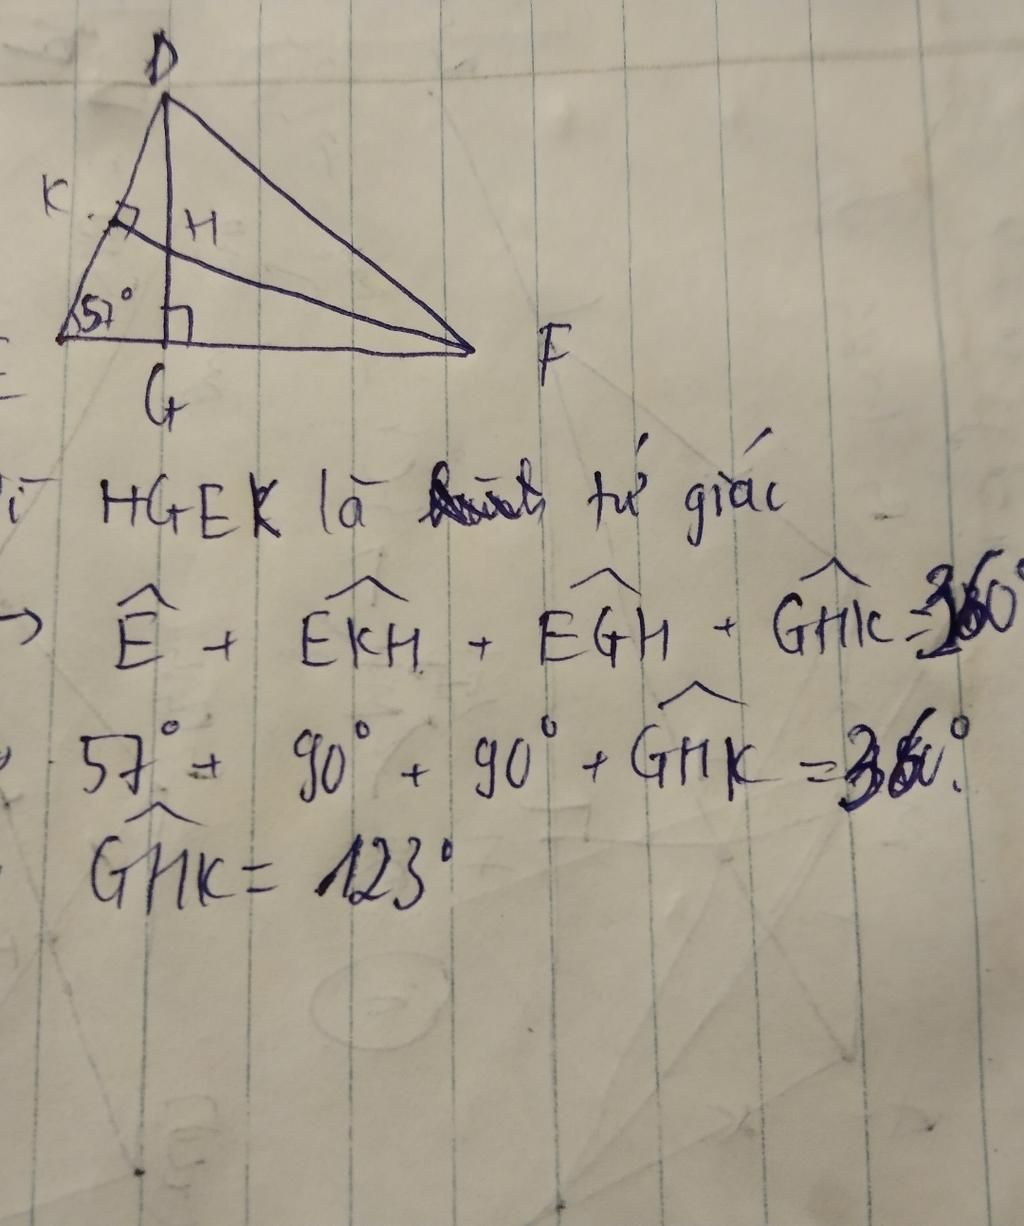 D
K
H
57°
F
G
HGEK là tứ giác
Ê + EKH + EGH + GHK = 360°
57° + 90° + 90° + GHK = 360°.
GHK = 123°